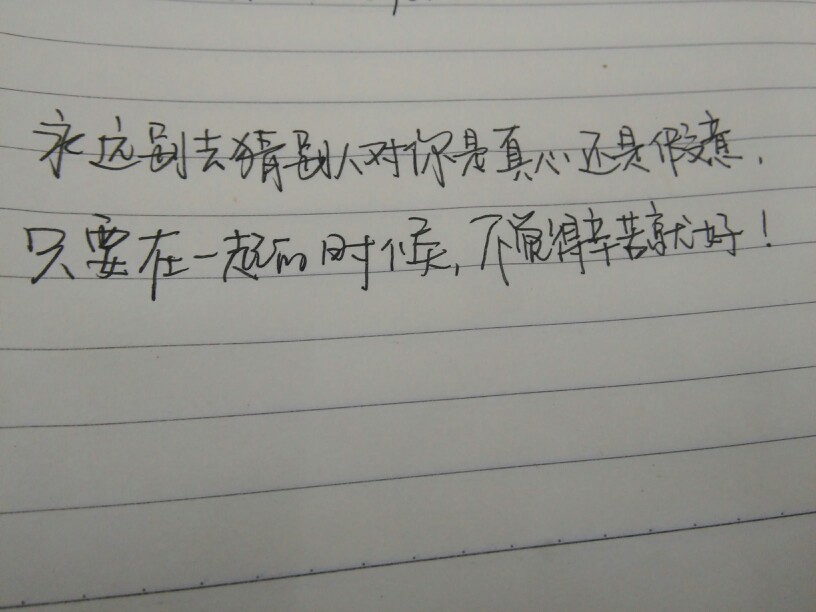 永远别去猜别人对你是真心还是假意，
只要在一起的时候，不觉得辛苦就好！